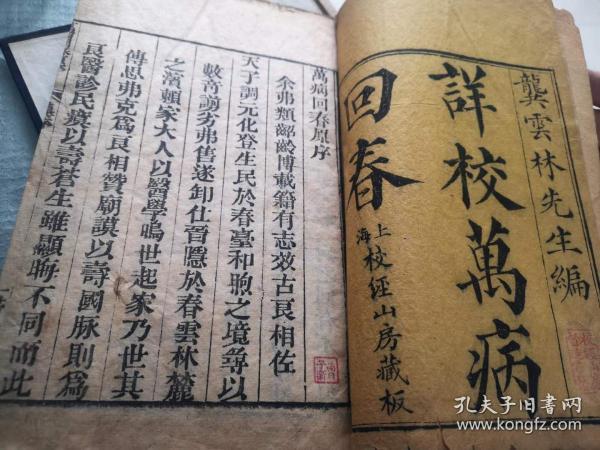 龔雲林先生編
詳校萬病
回春
上海校經山房藏板
萬病回春原序
余弗類齠齡博載籍有志效古良相佐
天子調元化登生民於春臺和煦之境等以
數奇謭劣弗售遂卸仕晉隱於春雲林麓
之濱賴家大人以醫學鳴世起家乃世其
傳思弗克為良相贊廟謨以壽國脉則為
良醫診民瘼以壽蒼生雖顯晦不同而此
孔夫子旧书网
www.kongfz.com